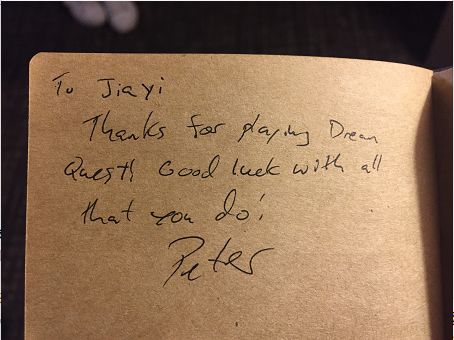 To Jiayi
Thanks for playing Dream
Quest! Good luck with all
that you do!
Peter